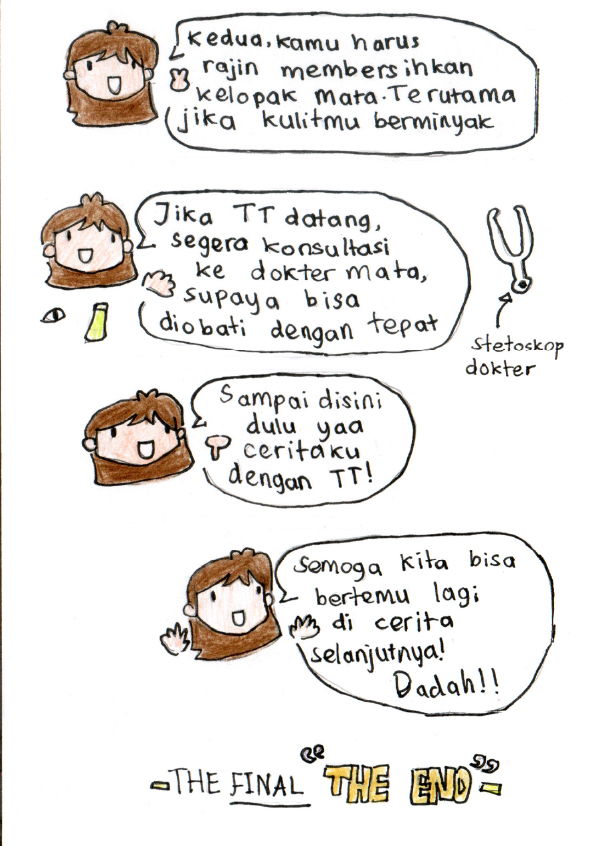 Kedua, kamu harus
rajin membersihkan
kelopak mata. Terutama
jika kulitmu berminyak
Jika TT datang,
segera konsultasi
ke dokter mata,
supaya bisa
diobati dengan tepat
stetoskop
dokter
Sampai disini
dulu yaa
ceritaku
dengan TT!
Semoga kita bisa
bertemu lagi
di cerita
selanjutnya!
Dadah!!
-THE FINAL "THE END"-